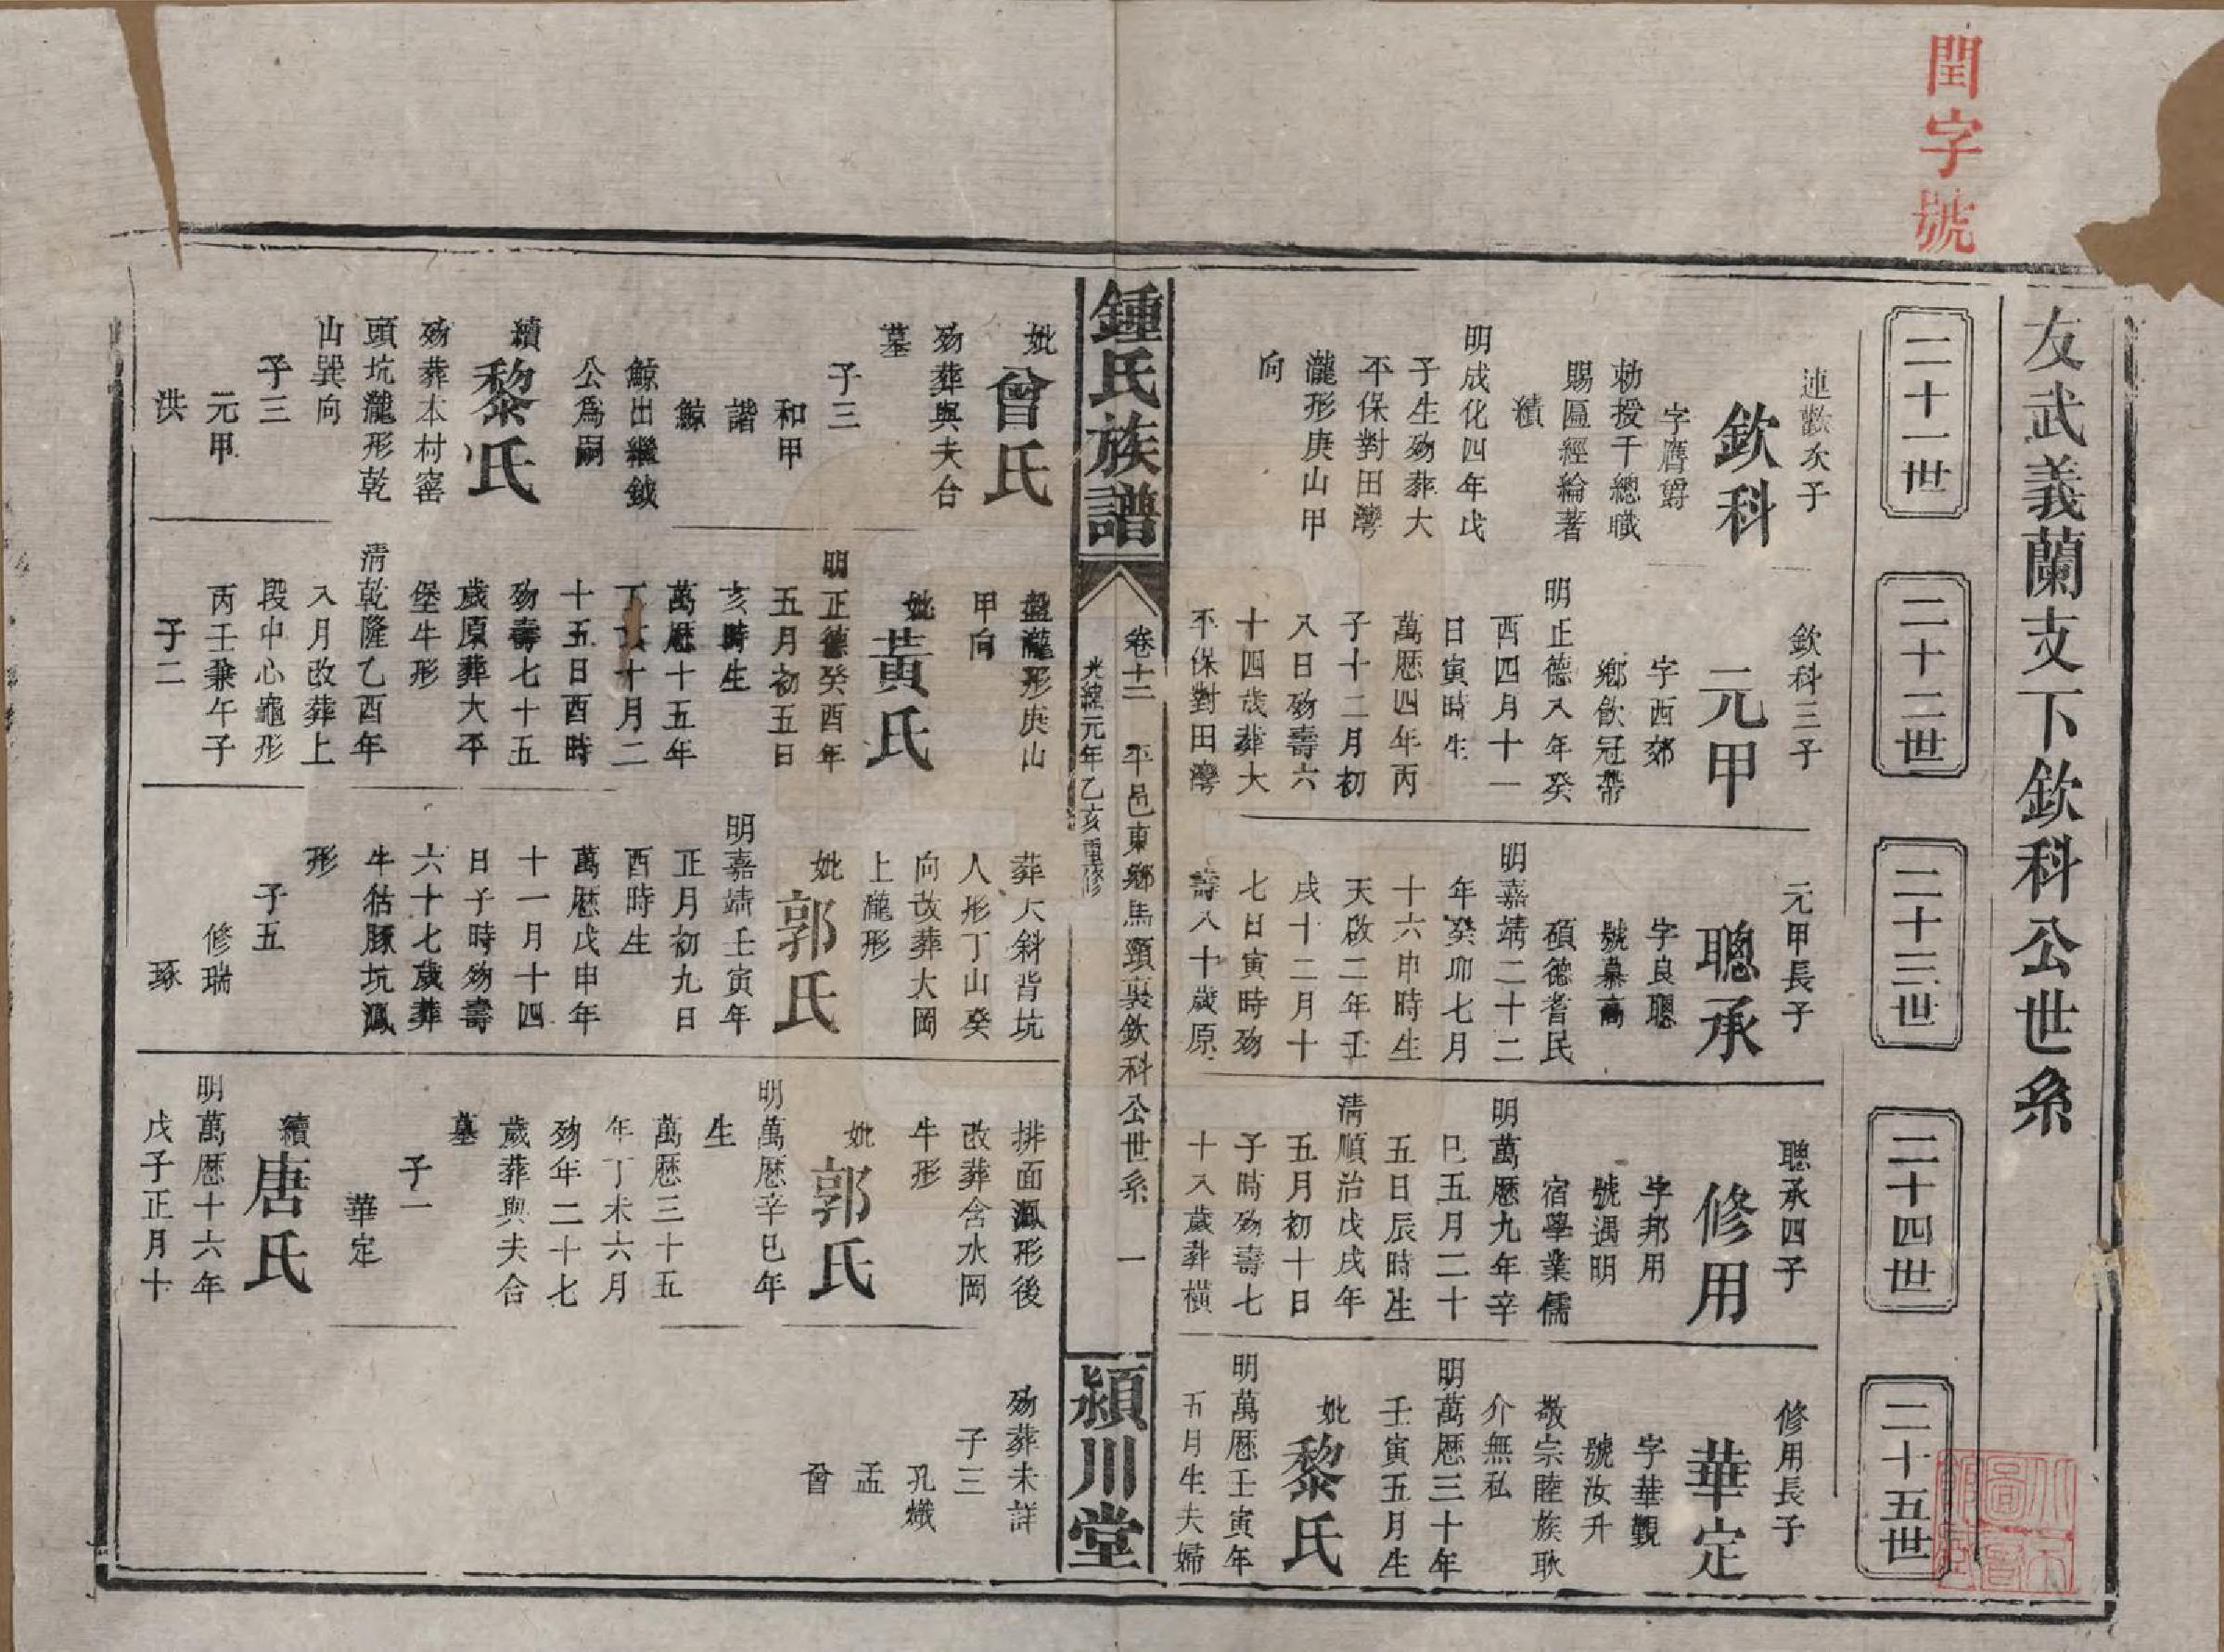 閏字號
友武義蘭支下欽科公世系
二十一世
連歡次子
欽科
字膺爵
勅授千總職
賜匾經綸著
績
明成化四年戊
子生殁葬大
不保對田灣
瀧形庚山甲
向
妣曾氏
殁葬與夫合
墓
子三
和甲
諧
鯨
鯨出繼鉞
公為嗣
續黎氏
殁葬本村窰
頭坑瀧形乾
山巽向
子三
元甲
洪
二十二世
欽科三子
元甲
字西郊
鄉飲冠帶
明正德八年癸
酉四月十一
日寅時生
萬歷四年丙
子十二月初
八日殁壽六
十四歲葬大
不保對田灣
盤瀧形庚山
甲向
妣黃氏
明正德癸酉年
五月初五日
亥時生
萬歷十五年
丁亥十月二
十五日酉時
殁壽七十五
歲原葬大平
堡牛形
清乾隆乙酉年
八月改葬上
段中心龜形
丙壬兼午子
子二
二十三世
元甲長子
聰承
字良聰
號慕高
碩德耆民
明嘉靖二十二
年癸卯七月
十六申時生
天啟二年壬
戌十二月十
七日寅時殁
壽八十歲原
葬大斜背坑
人形丁山癸
向改葬大岡
上瀧形
妣郭氏
明嘉靖壬寅年
正月初九日
酉時生
萬歷戊申年
十一月十四
日子時殁壽
六十七歲葬
牛牯豚坑鳳
形
子五
修瑞
琢
二十四世
聰承四子
修用
字邦用
號遇明
宿學業儒
明萬歷九年辛
巳五月二十
五日辰時生
清順治戊戌年
五月初十日
子時殁壽七
十八歲葬橫
排面鳳形後
改葬含水岡
牛形
妣郭氏
明萬歷辛巳年
生
萬歷三十五
年丁未六月
殁年二十七
歲葬與夫合
墓
子一
華定
續唐氏
明萬歷十六年
戊子正月十
二十五世
修用長子
華定
字華觀
號汝升
敬宗睦族耿
介無私
明萬歷三十年
壬寅五月生
妣黎氏
明萬歷壬寅年
五月生夫婦
殁葬未詳
子三
孔熾
孟
曾
鍾氏族譜
卷十二 平邑東鄉馬頸裏欽科公世系 一
光緒元年乙亥重修
潁川堂